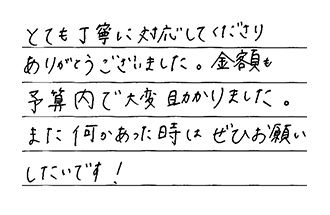 とても丁寧に対応してくださり
ありがとうございました。金額も
予算内で大変助かりました。
また何かあった時はぜひお願い
したいです！